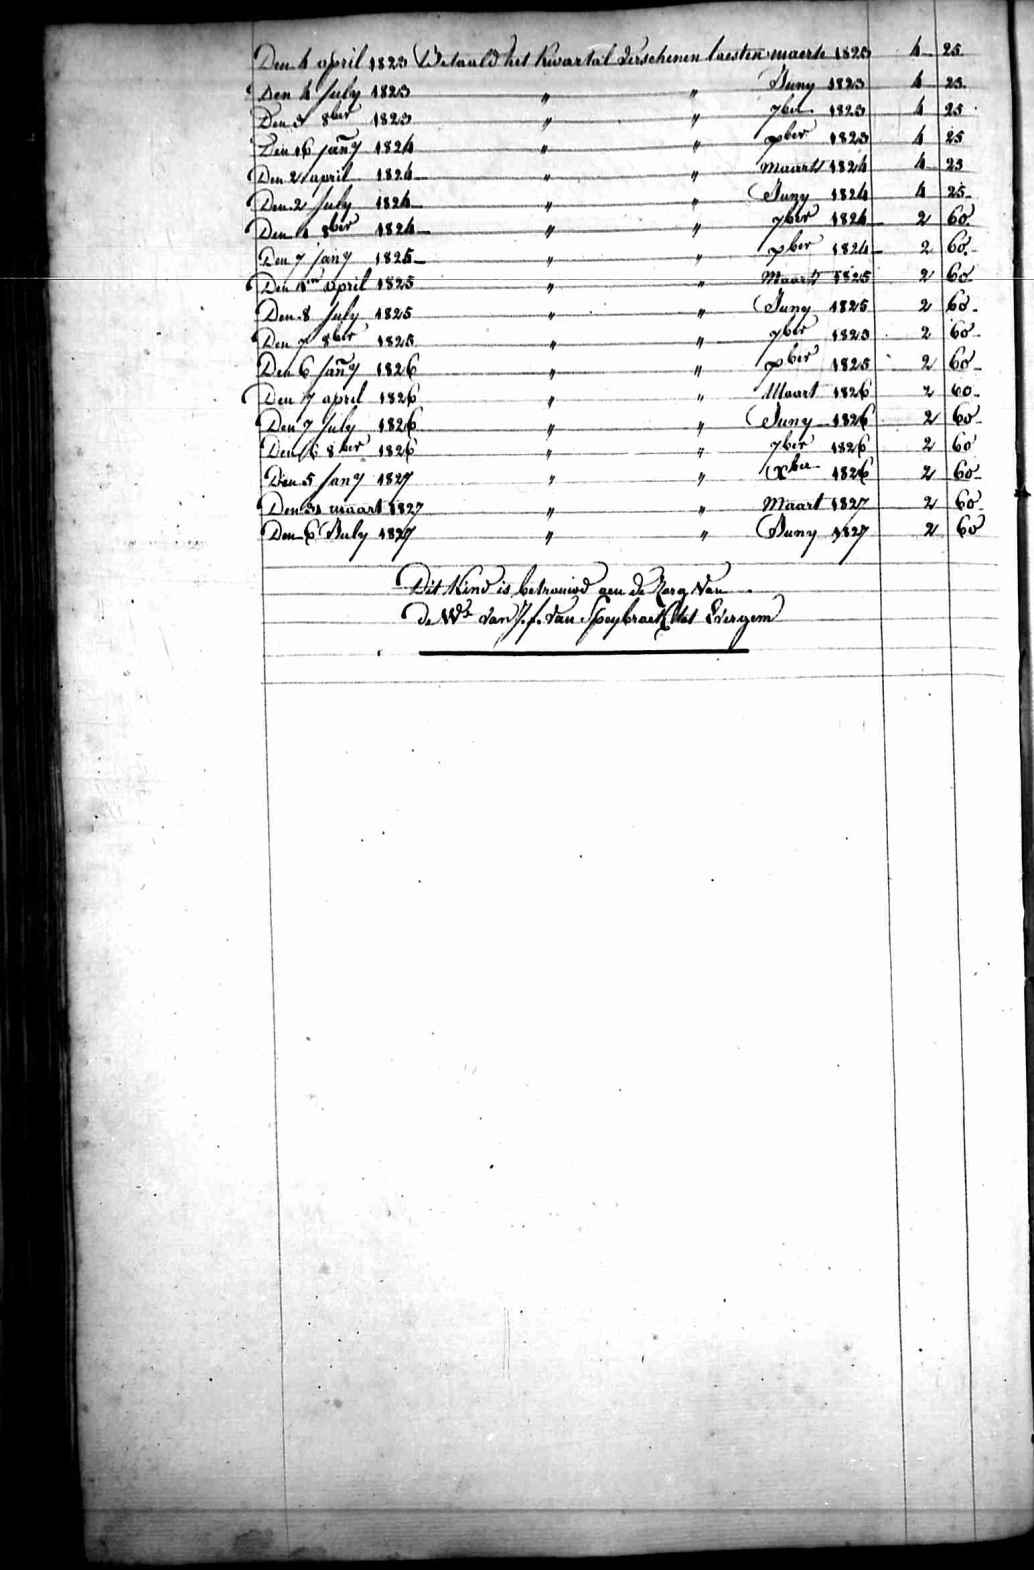 Den 4 april 1823 Betaald het kwartal verschenen laesten maerte 1823 4 25
Den 4 July 1823 " " Juny 1823 4 25
Den 3 8ber 1823 " " 7ber 1823 4 25
Den 16 Jany 1824 " " xber 1823 4 25
Den 2 april 1824 " " Maart 1824 4 25
Den 2 July 1824 " " Juny 1824 4 25
Den 1 8ber 1824 " " 7ber 1824 2 60
Den 7 Jany 1825 " " xber 1824 2 60
Den april 1825 " " Maart 1825 2 60
Den 8 July 1825 " " Juny 1825 2 60
Den 7 8ber 1825 " " 7ber 1825 2 60
Den 6 Jany 1826 " " xber 1825 2 60
Den 7 april 1826 " " Maart 1826 2 60
Den 7 July 1826 " " Juny 1826 2 60
Den 6 8ber 1826 " " 7ber 1826 2 60
Den 5 Jany 1827 " " Xber 1826 2 60
Den 31 maart 1827 " " Maart 1827 2 60
Den 6 July 1827 " " Juny 1827 2 60
Dit Kind is betrouwd aen de Zorg van
de We van J. f. van Speybroek tot Evergem